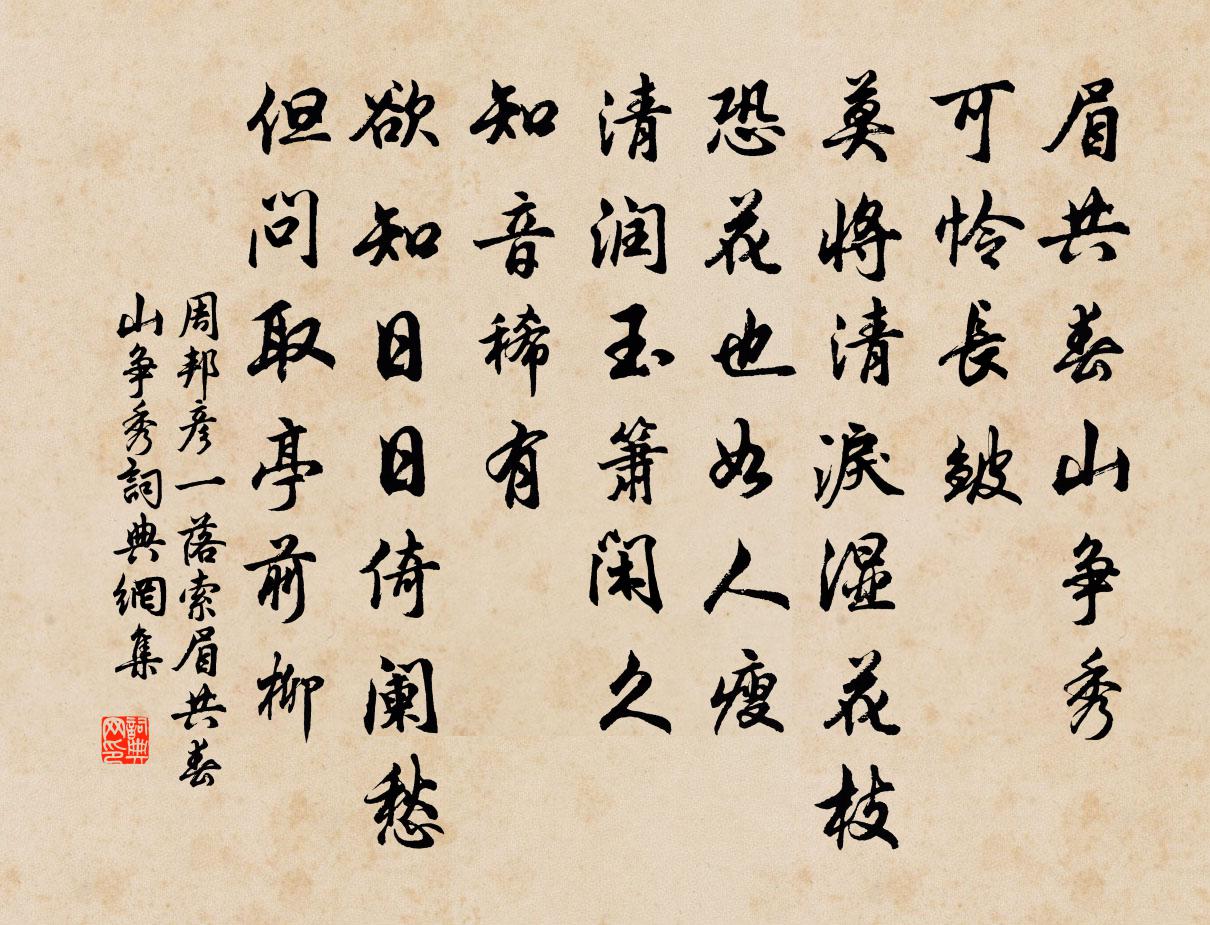 眉共春山争秀
可怜長皴
莫将清淚濕花枝
恐花也如人瘦
清润玉箫閑久
知音稀有
欲知日日倚阑愁
但问取亭前柳
周邦彦一落索眉共春
山争秀詞典網集
詞典网印